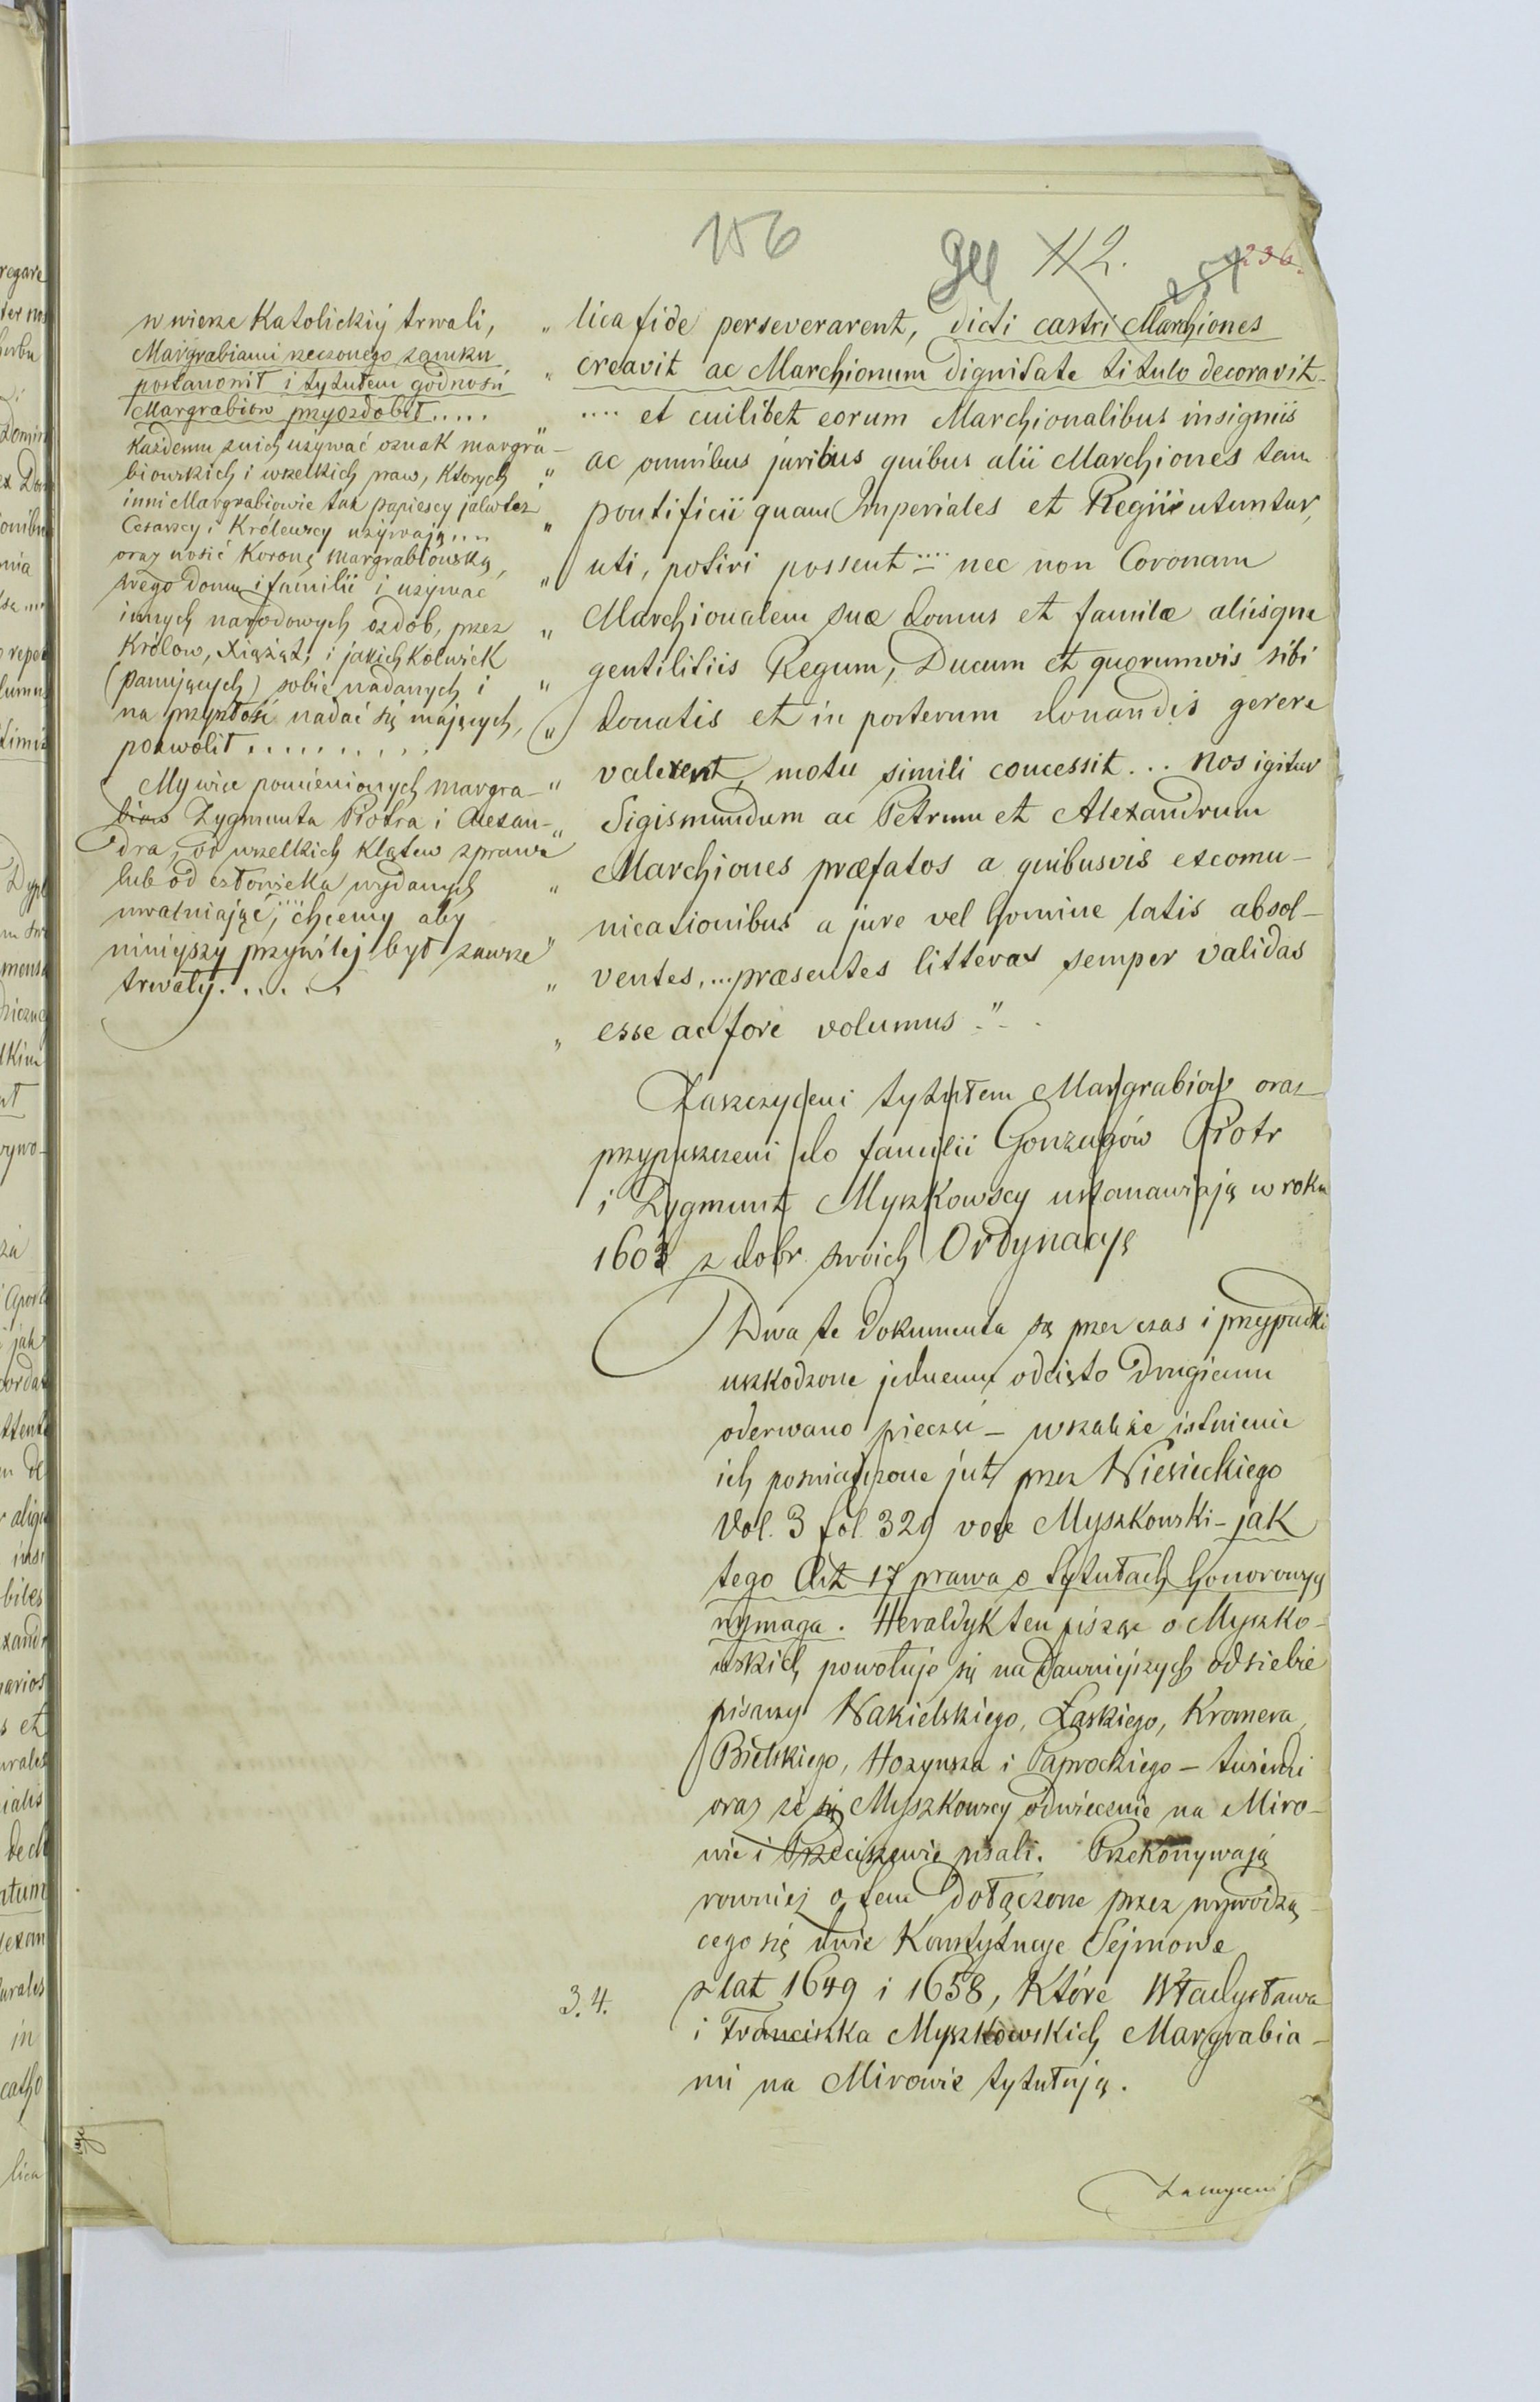 156
112.
236.
w wierze Katolickiéj trwali,
Margrabiami rzeczonego zamku
postanowił i tytułem godności
Margrabiow przyozdobił.....
Każdemu z nich używać oznak margra-
biowskich i wszelkich praw, których
inni Margrabiowie tak papiescy jako też
Cesarscy i Królewscy używają....
oraz nosić Koronę margrabiowską,
swego domu i familii i używać
innych narodowych ozdób, przez
Królow, Xiążąt, i jakichkolwiek
(panujących) sobie nadanych i
na przyszłość nadać się mających,
pozwolił..........
My więc pomienionych margra-
biow Zygmunta Piotra i Alexan-
dra, od wszelkich klątew z prawa
lub od człowieka wydanych
uwalniając,.... chcemy aby
niniejszy przywilej był zawsze
trwały.....
„ lica fide perseverarent, dicti castri Marchiones
„ creavit ac Marchionum dignitate titulo decoravit-
.... et cuilibet eorum Marchionalibus insigniis
„ ac omnibus juribus quibus alii Marchiones tam
„ pontificii quam Imperiales et Regii utuntur,
„ uti, potiri possent .... nec non Coronam
„ Marchionalem suæ domus et familæ aliisque
„ gentilitiis Regum, Ducum et quorumvis sibi
„ donatis et in posterum donandis gerere
„ valerent, motu simili concessit... Nos igitur
„ Sigismundum ac Petrum et Alexandrum
„ Marchiones præfatos a quibusvis excomu-
„ nicationibus a jure vel homine latis absol-
„ ventes,... præsentes litteras semper validas
„ esse ac fore volumus."
Zaszczyceni tytułem Margrabiow oraz
przypuszczeni do familii Gonzagów Piotr
i Zygmunt Myszkowscy ustanawiają w roku
1603 z dobr swoich Ordynacyę
Dwa te dokumenta są przez czas i przypadki
uszkodzone jednemu odcięto drugiemu
oderwano pieczęć – wszakże istnienie
ich poświadczone już przez Niesieckiego
Vol. 3 fol. 329 voce Myszkowski – jak
tego Art 17 prawa o tytułach honorowych
wymaga. Heraldyk ten pisząc o Myszko-
wskich powołuje się na dawniejszych od siebie
pisarzy Nakielskiego, Łaskiego, Kromera,
Bielskiego, Hozyusza i Paprockiego – twierdzi
oraz że się Myszkowscy odwiecznie na Miro-
wie i Przeciszewie pisali. Przekonywają
rownież o tem dołączone przez wywodzą-
cego się dwie Konstytucye Sejmowe
3.4. z lat 1649 i 1658, Które Władysława
i Franciszka Myszkowskich Margrabia-
mi na Mirowie tytułują.